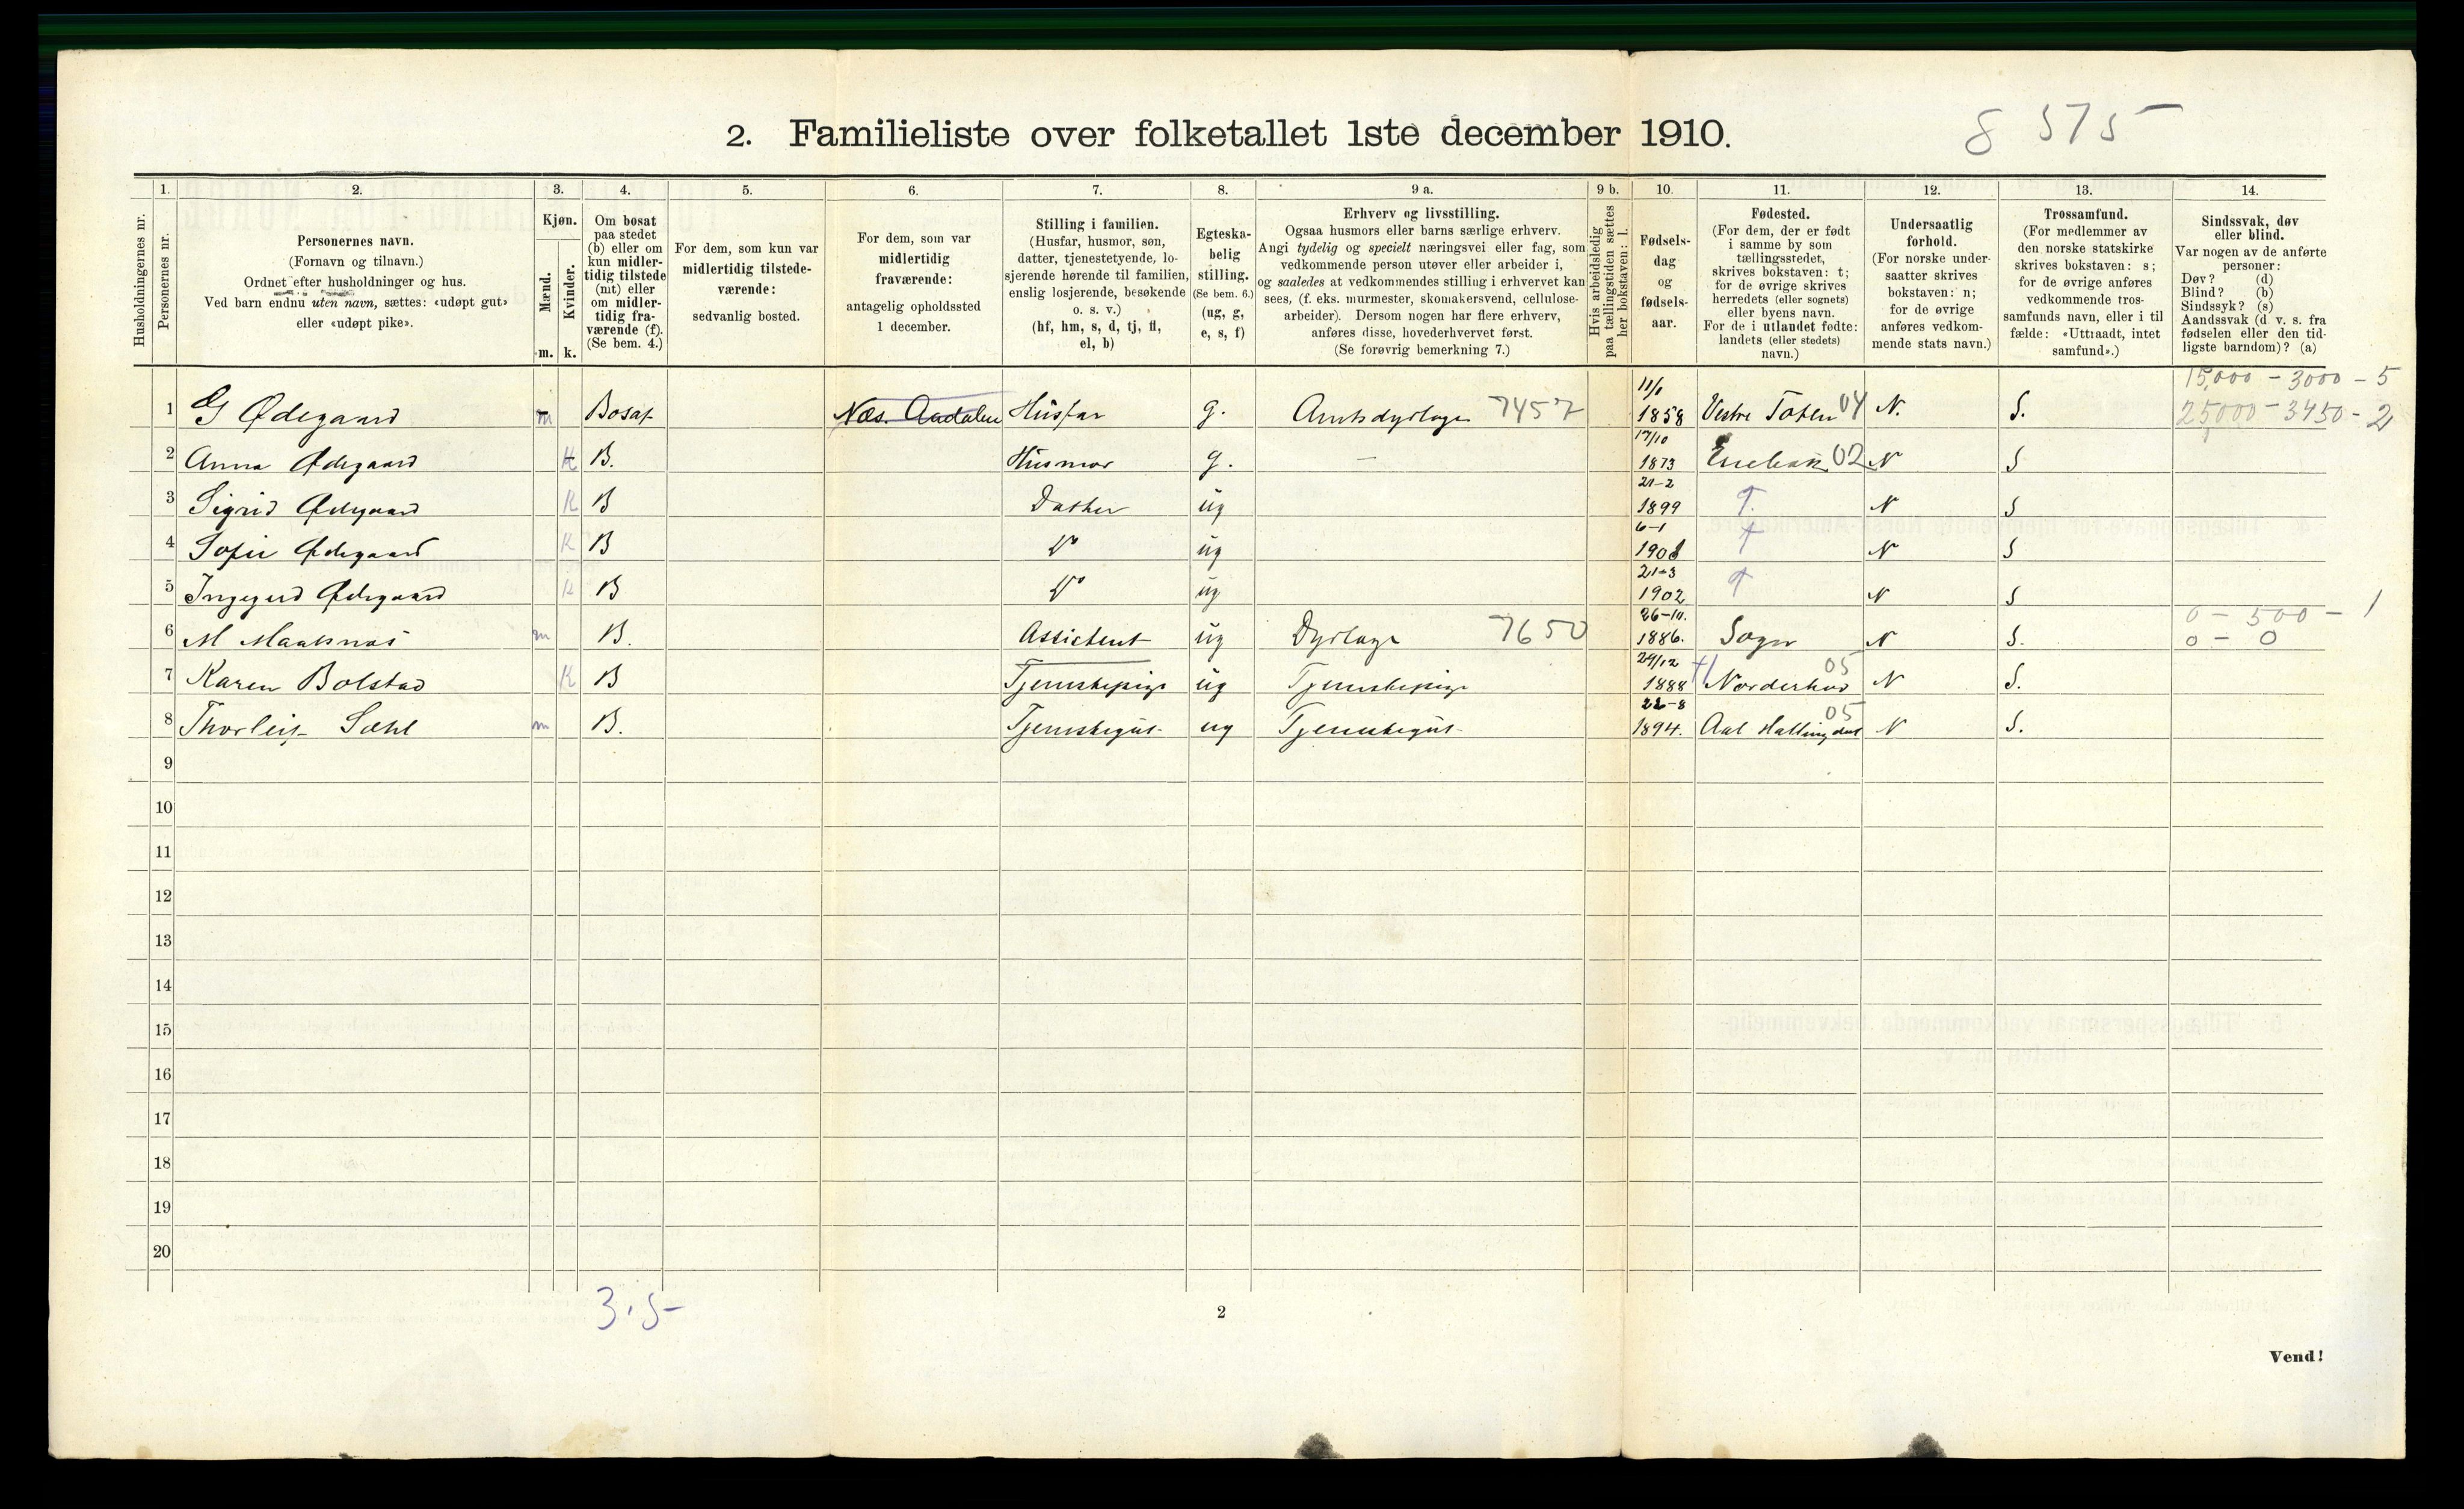 2. Familieliste over folketallet 1ste december 1910.
8 575
Husholdningernes nr.
1. Personernes nr.
2. Personernes navn.
(Fornavn og tilnavn.)
Ordnet efter husholdninger og hus.
Ved barn endnu uten navn, sættes: «udøpt gut»
eller «udøpt pike».
3. Kjøn.
Mænd. m.
Kvinder. k.
4. Om bosat
paa stedet
(b) eller om
kun midler-
tidig tilstede
(mt) eller
om midler-
tidig fra-
værende (f).
(Se bem. 4.)
5. For dem, som kun var
midlertidig tilstede-
værende:
sedvanlig bosted.
6. For dem, som var
midlertidig
fraværende:
antagelig opholdssted
1 december.
7. Stilling i familien.
(Husfar, husmor, søn,
datter, tjenestetyende, lo-
sjerende hørende til familien,
enslig losjerende, besøkende
o. s. v.)
(hf, hm, s, d, tj, fl,
el, b)
8. Egteska-
belig
stilling.
(Se bem. 6.)
(ug, g,
e, s, f)
9 a. Erhverv og livsstilling.
Ogsaa husmors eller barns særlige erhverv.
Angi tydelig og specielt næringsvei eller fag, som
vedkommende person utøver eller arbeider i,
og saaledes at vedkommendes stilling i erhvervet kan
sees, (f. eks. murmester, skomakersvend, cellulose-
arbeider). Dersom nogen har flere erhverv,
anføres disse, hovederhvervet først.
(Se forøvrig bemerkning 7.)
9 b. Hvis arbeidsledig
paa tællingstiden sættes
her bokstaven: l.
10. Fødsels-
dag
og
fødsels-
aar.
11. Fødested.
(For dem, der er født
i samme by som
tællingsstedet,
skrives bokstaven: t;
for de øvrige skrives
herredets (eller sognets)
eller byens navn.
For de i utlandet fødte:
landets (eller stedets)
navn.)
12. Undersaatlig
forhold.
(For norske under-
saatter skrives
bokstaven: n;
for de øvrige
anføres vedkom-
mende stats navn.)
13. Trossamfund.
(For medlemmer av
den norske statskirke
skrives bokstaven: s;
for de øvrige anføres
vedkommende tros-
samfunds navn, eller i til
fælde: «Uttraadt, intet
samfund».)
14. Sindssvak, døv
eller blind.
Var nogen av de anførte
personer:
Døv? (d)
Blind? (b)
Sindssyk? (s)
Aandssvak (d. v. s. fra
fødselen eller den tid-
ligste barndom)? (a)
15,000 - 3000 - 5
1 G Ødegaard m Bosat Næs. Aadalen Husfar g. Amtsdyrlæge 7457 11/1 1858 Vestre Toten 04 N. S. 25,000 - 3450 - 2
2 Anna Ødegaard K B. Husmor g. — 17/10 1873 Enebak 02 N S
3 Sigrid Ødegaard K B Datter ug 21-2 1899 T. N S
4 Sofie Ødegaard K B Do ug 6-1 T N S
5 Ingegerd Ødegaard K B Do ug 21-3 1902 T N S
0 - 500 - 1
6 M m B. Assistent ug Dyrlæge 7650 26-10. 1886. Sogn N S. 0 - 0
7 Karen Bolstad K B Tjenestepige ug Tjenestepige 24/12 1888 Norderhov 05 N S.
8 Thorleif Sæhl m B. Tjenestegut ug Tjenestegut 1894. Aal Hallingdal 05 N S.
9
10
11
12
13
14
15
16
17
18
19
20
3.5-
2
Vend!